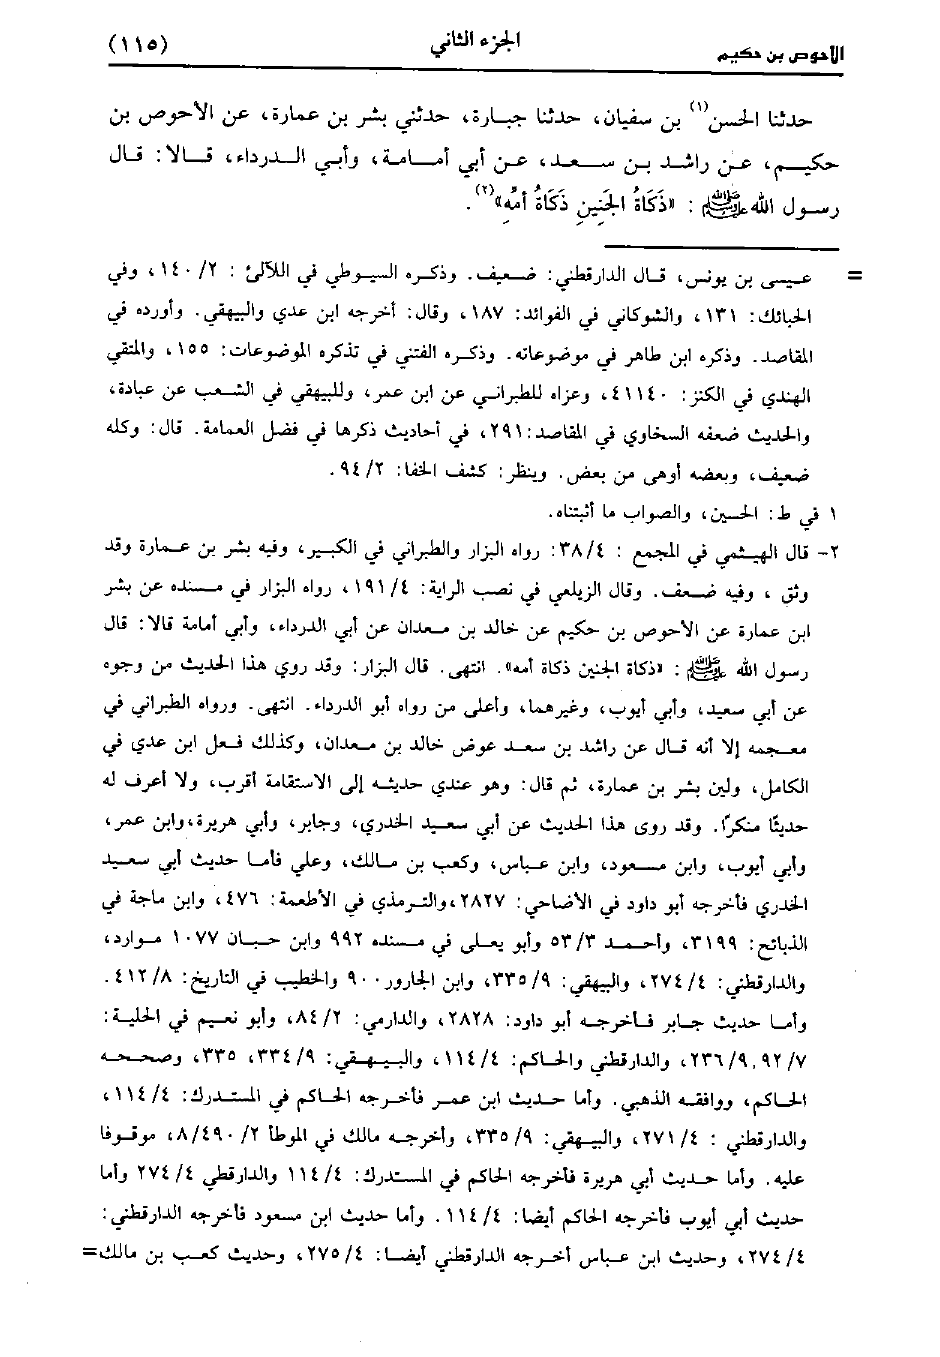 الأحوص بن حكيم
الجزء الثاني
(١١٥)
حدثنا الحسن(١) بن سفيان، حدثنا جبارة، حدثني بشر بن عمارة، عن الأحوص بن
حكيم، عن راشد بن سعد، عن أبي أمامة، وأبي الدرداء، قالا: قال
رسول الله ﷺ : «ذَكَاةُ الجَنِينِ ذَكَاةُ أُمِّهِ»(٢).
= عيسى بن يونس، قال الدارقطني: ضعيف. وذكره السيوطي في اللآلئ : ٢/ ١٤٠، وفي
الحبائك: ١٣١، والشوكاني في الفوائد: ١٨٧، وقال: أخرجه ابن عدي والبيهقي. وأورده في
المقاصد. وذكره ابن طاهر في موضوعاته. وذكره الفتني في تذكره الموضوعات: ١٥٥، والمتقي
الهندي في الكنز: ٤١١٤٠، وعزاه للطبراني عن ابن عمر، وللبيهقي في الشعب عن عبادة،
والحديث ضعفه السخاوي في المقاصد: ٢٩١، في أحاديث ذكرها في فضل العمامة. قال: وكله
ضعيف، وبعضه أوهى من بعض. وينظر: كشف الخفا: ٢/ ٩٤.
١ في ط: الحسين، والصواب ما أثبتناه.
٢- قال الهيثمي في المجمع : ٤/ ٣٨: رواه البزار والطبراني في الكبير، وفيه بشر بن عمارة وقد
وثق ، وفيه ضعف. وقال الزيلعي في نصب الراية: ٤/ ١٩١، رواه البزار في مسنده عن بشر
ابن عمارة عن الأحوص بن حكيم عن خالد بن معدان عن أبي الدرداء، وأبي أمامة قالا: قال
رسول الله ﷺ : «ذكاة الجنين ذكاة أمه». انتهى. قال البزار: وقد روي هذا الحديث من وجوه
عن أبي سعيد، وأبي أيوب، وغيرهما، وأعلى من رواه أبو الدرداء. انتهى. ورواه الطبراني في
معجمه إلا أنه قال عن راشد بن سعد عوض خالد بن معدان، وكذلك فعل ابن عدي في
الكامل، ولين بشر بن عمارة، ثم قال: وهو عندي حديثه إلى الاستقامة أقرب، ولا أعرف له
حديثًا منكرًا. وقد روى هذا الحديث عن أبي سعيد الخدري، وجابر، وأبي هريرة،وابن عمر،
وأبي أيوب، وابن مسعود، وابن عباس، وكعب بن مالك، وعلي فأما حديث أبي سعيد
الخدري فأخرجه أبو داود في الأضاحي: ٢٨٢٧،والترمذي في الأطعمة: ٤٧٦، وابن ماجة في
الذبائح: ٣١٩٩، وأحمد ٣/ ٥٣ وأبو يعلى في مسنده ٩٩٢ وابن حبان ١٠٧٧ موارد،
والدارقطني: ٤/ ٢٧٤، والبيهقي: ٩/ ٣٣٥، وابن الجارور٩٠٠ والخطيب في التاريخ: ٨/ ٤١٢.
وأما حديث جابر فأخرجه أبو داود: ٢٨٢٨، والدارمي: ٢/ ٨٤، وأبو نعيم في الحلية:
٧/ ٩٢ ,٩/ ٢٣٦، والدارقطني والحاكم: ٤/ ١١٤، والبيهقي: ٩/ ٣٣٤، ٣٣٥، وصححه
الحاكم، ووافقه الذهبي. وأما حديث ابن عمر فأخرجه الحاكم في المستدرك: ٤/ ١١٤،
والدارقطني : ٤/ ٢٧١، والبيهقي: ٩/ ٣٣٥، وأخرجه مالك في الموطأ ٢/ ٤٩٠/ ٨، موقوفا
عليه. وأما حديث أبي هريرة فأخرجه الحاكم في المستدرك: ٤/ ١١٤ والدارقطي ٤/ ٢٧٤ وأما
حديث أبي أيوب فأخرجه الحاكم أيضا: ٤/ ١١٤. وأما حديث ابن مسعود فأخرجه الدارقطني:
٤/ ٢٧٤، وحديث ابن عباس أخرجه الدارقطني أيضا: ٤/ ٢٧٥، وحديث كعب بن مالك=